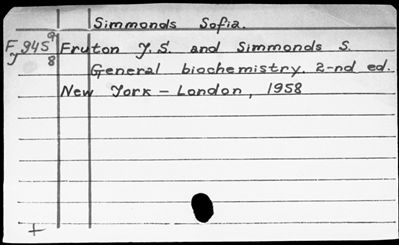 Simmonds Sofia.
F 945 9
J 8
Fruton J.S. and Simmonds S.
General biochemistry. 2-nd ed.
New York - London, 1958
+